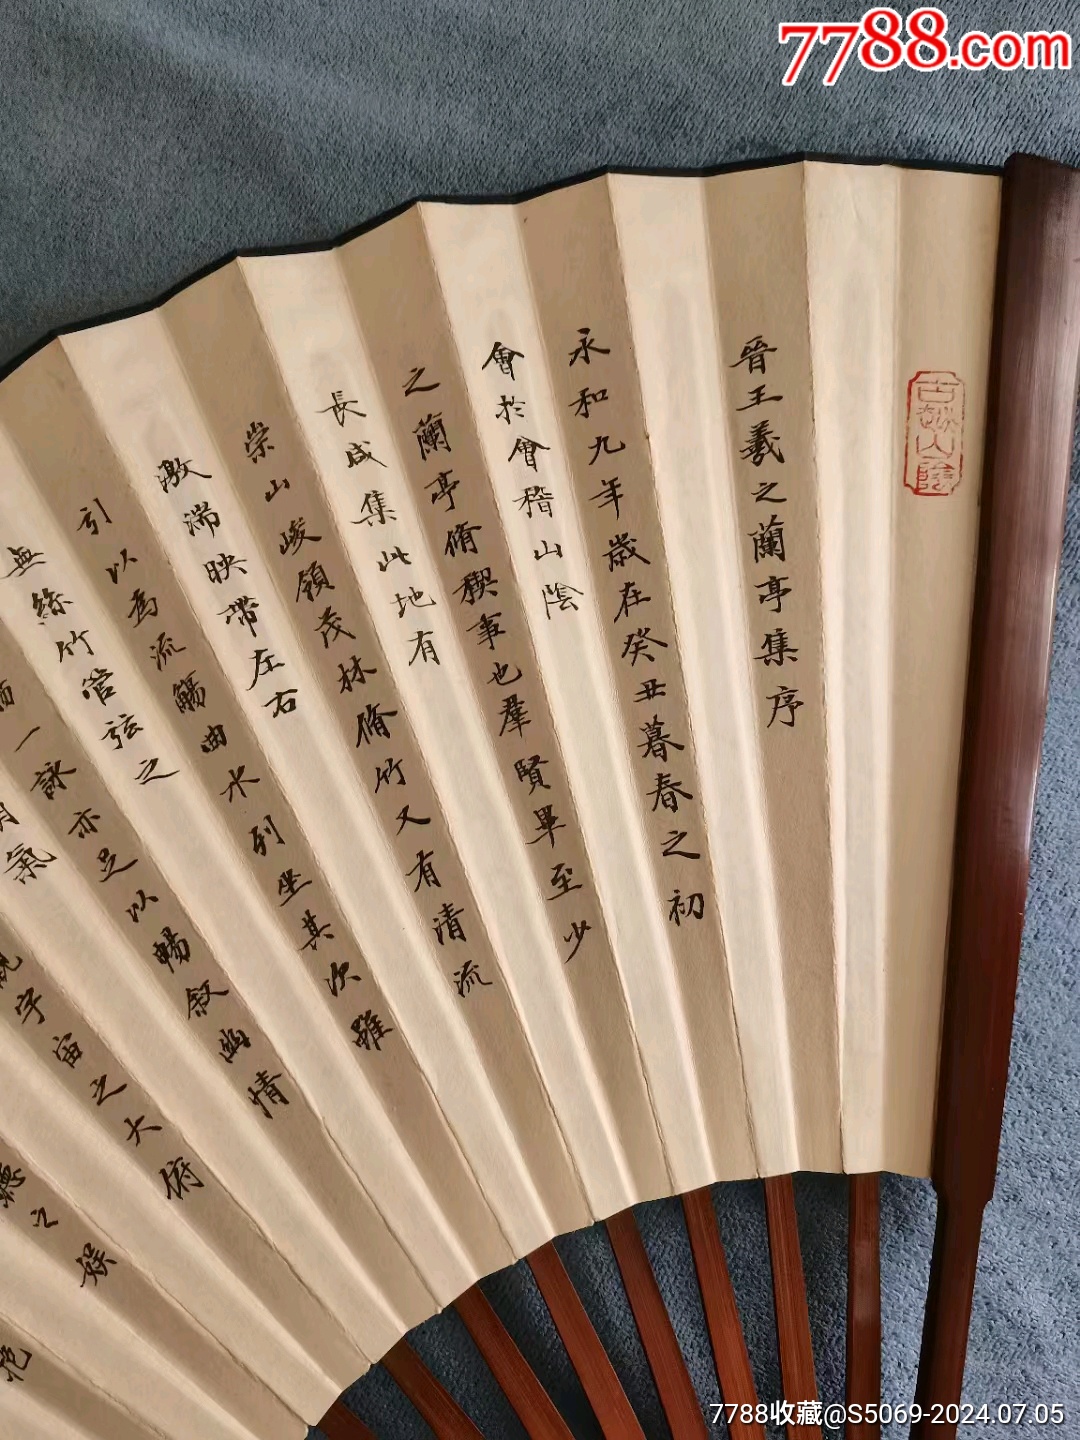 7788.com
古越山陰
晉王羲之蘭亭集序
永和九年歲在癸丑暮春之初
會於會稽山陰
之蘭亭脩稧事也羣賢畢至少
長咸集此地有
崇山峻領茂林脩竹又有清流
激湍映帶左右
引以為流觴曲水列坐其次雖
無絲竹管弦之
一詠亦足以暢敘幽情
氣
宇宙之大俯
聽之娛
7788收藏@S5069-2024.07.05